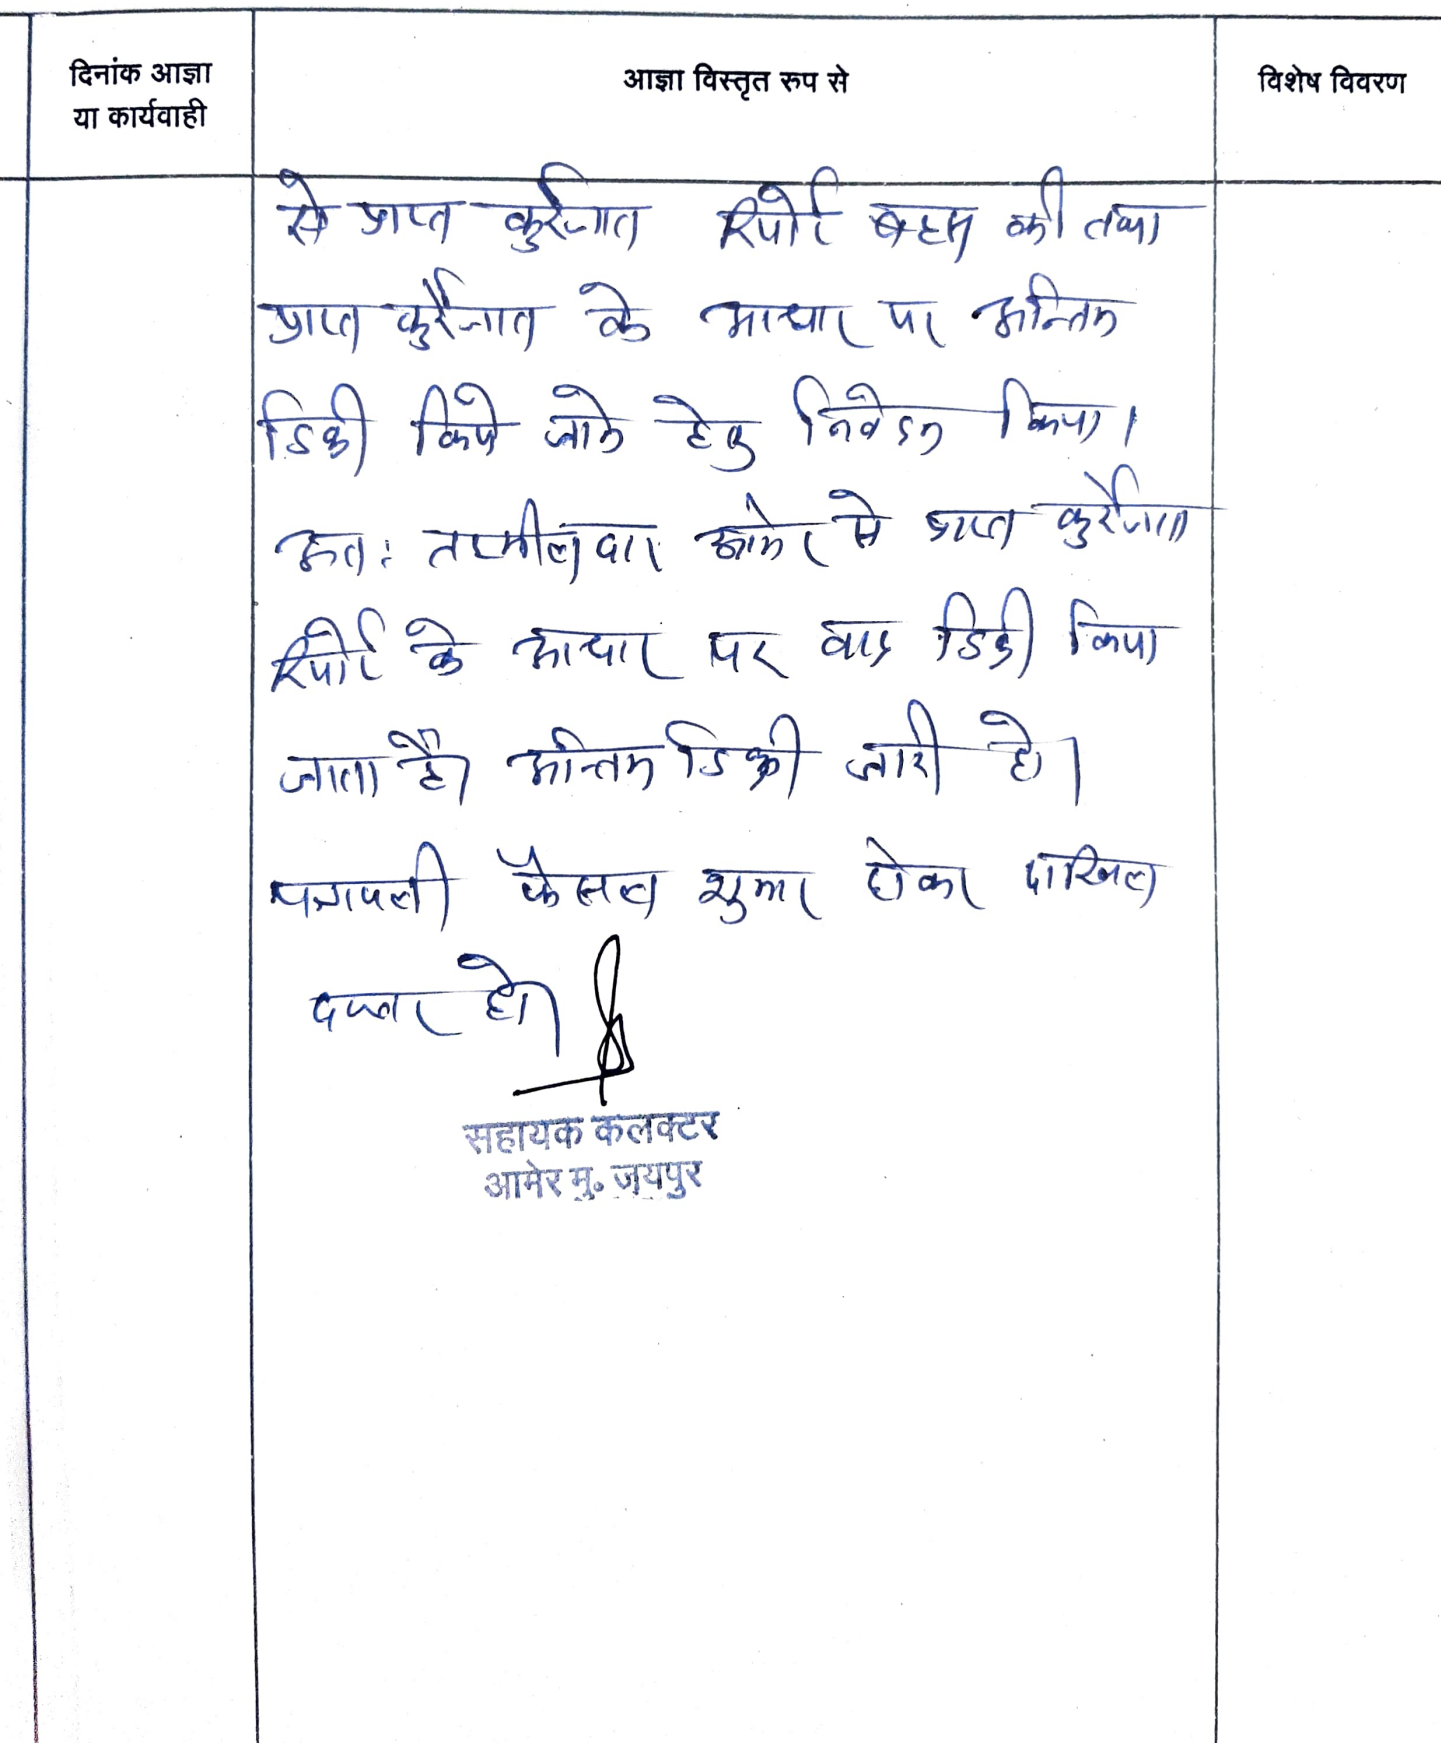 दिनांक आज्ञा
या कार्यवाही
आज्ञा विस्तृत रुप से
विशेष विवरण
से प्राप्त कुर्रेजात रिपोर्ट बहस की तथा
प्राप्त कुर्रेजात के आधार पर अन्तिम
डिक्री किये जाने हेतु निवेदन किया।
अतः तहसीलदार आमेर से प्राप्त कुर्रेजात
रिपोर्ट के आधार पर वाद डिक्री किया
जाता है। अन्तिम डिक्री जारी हो।
पत्रावली फैसल शुमार होकर दाखिल
दफ्तर हो।
सहायक कलक्टर
आमेर मु. जयपुर